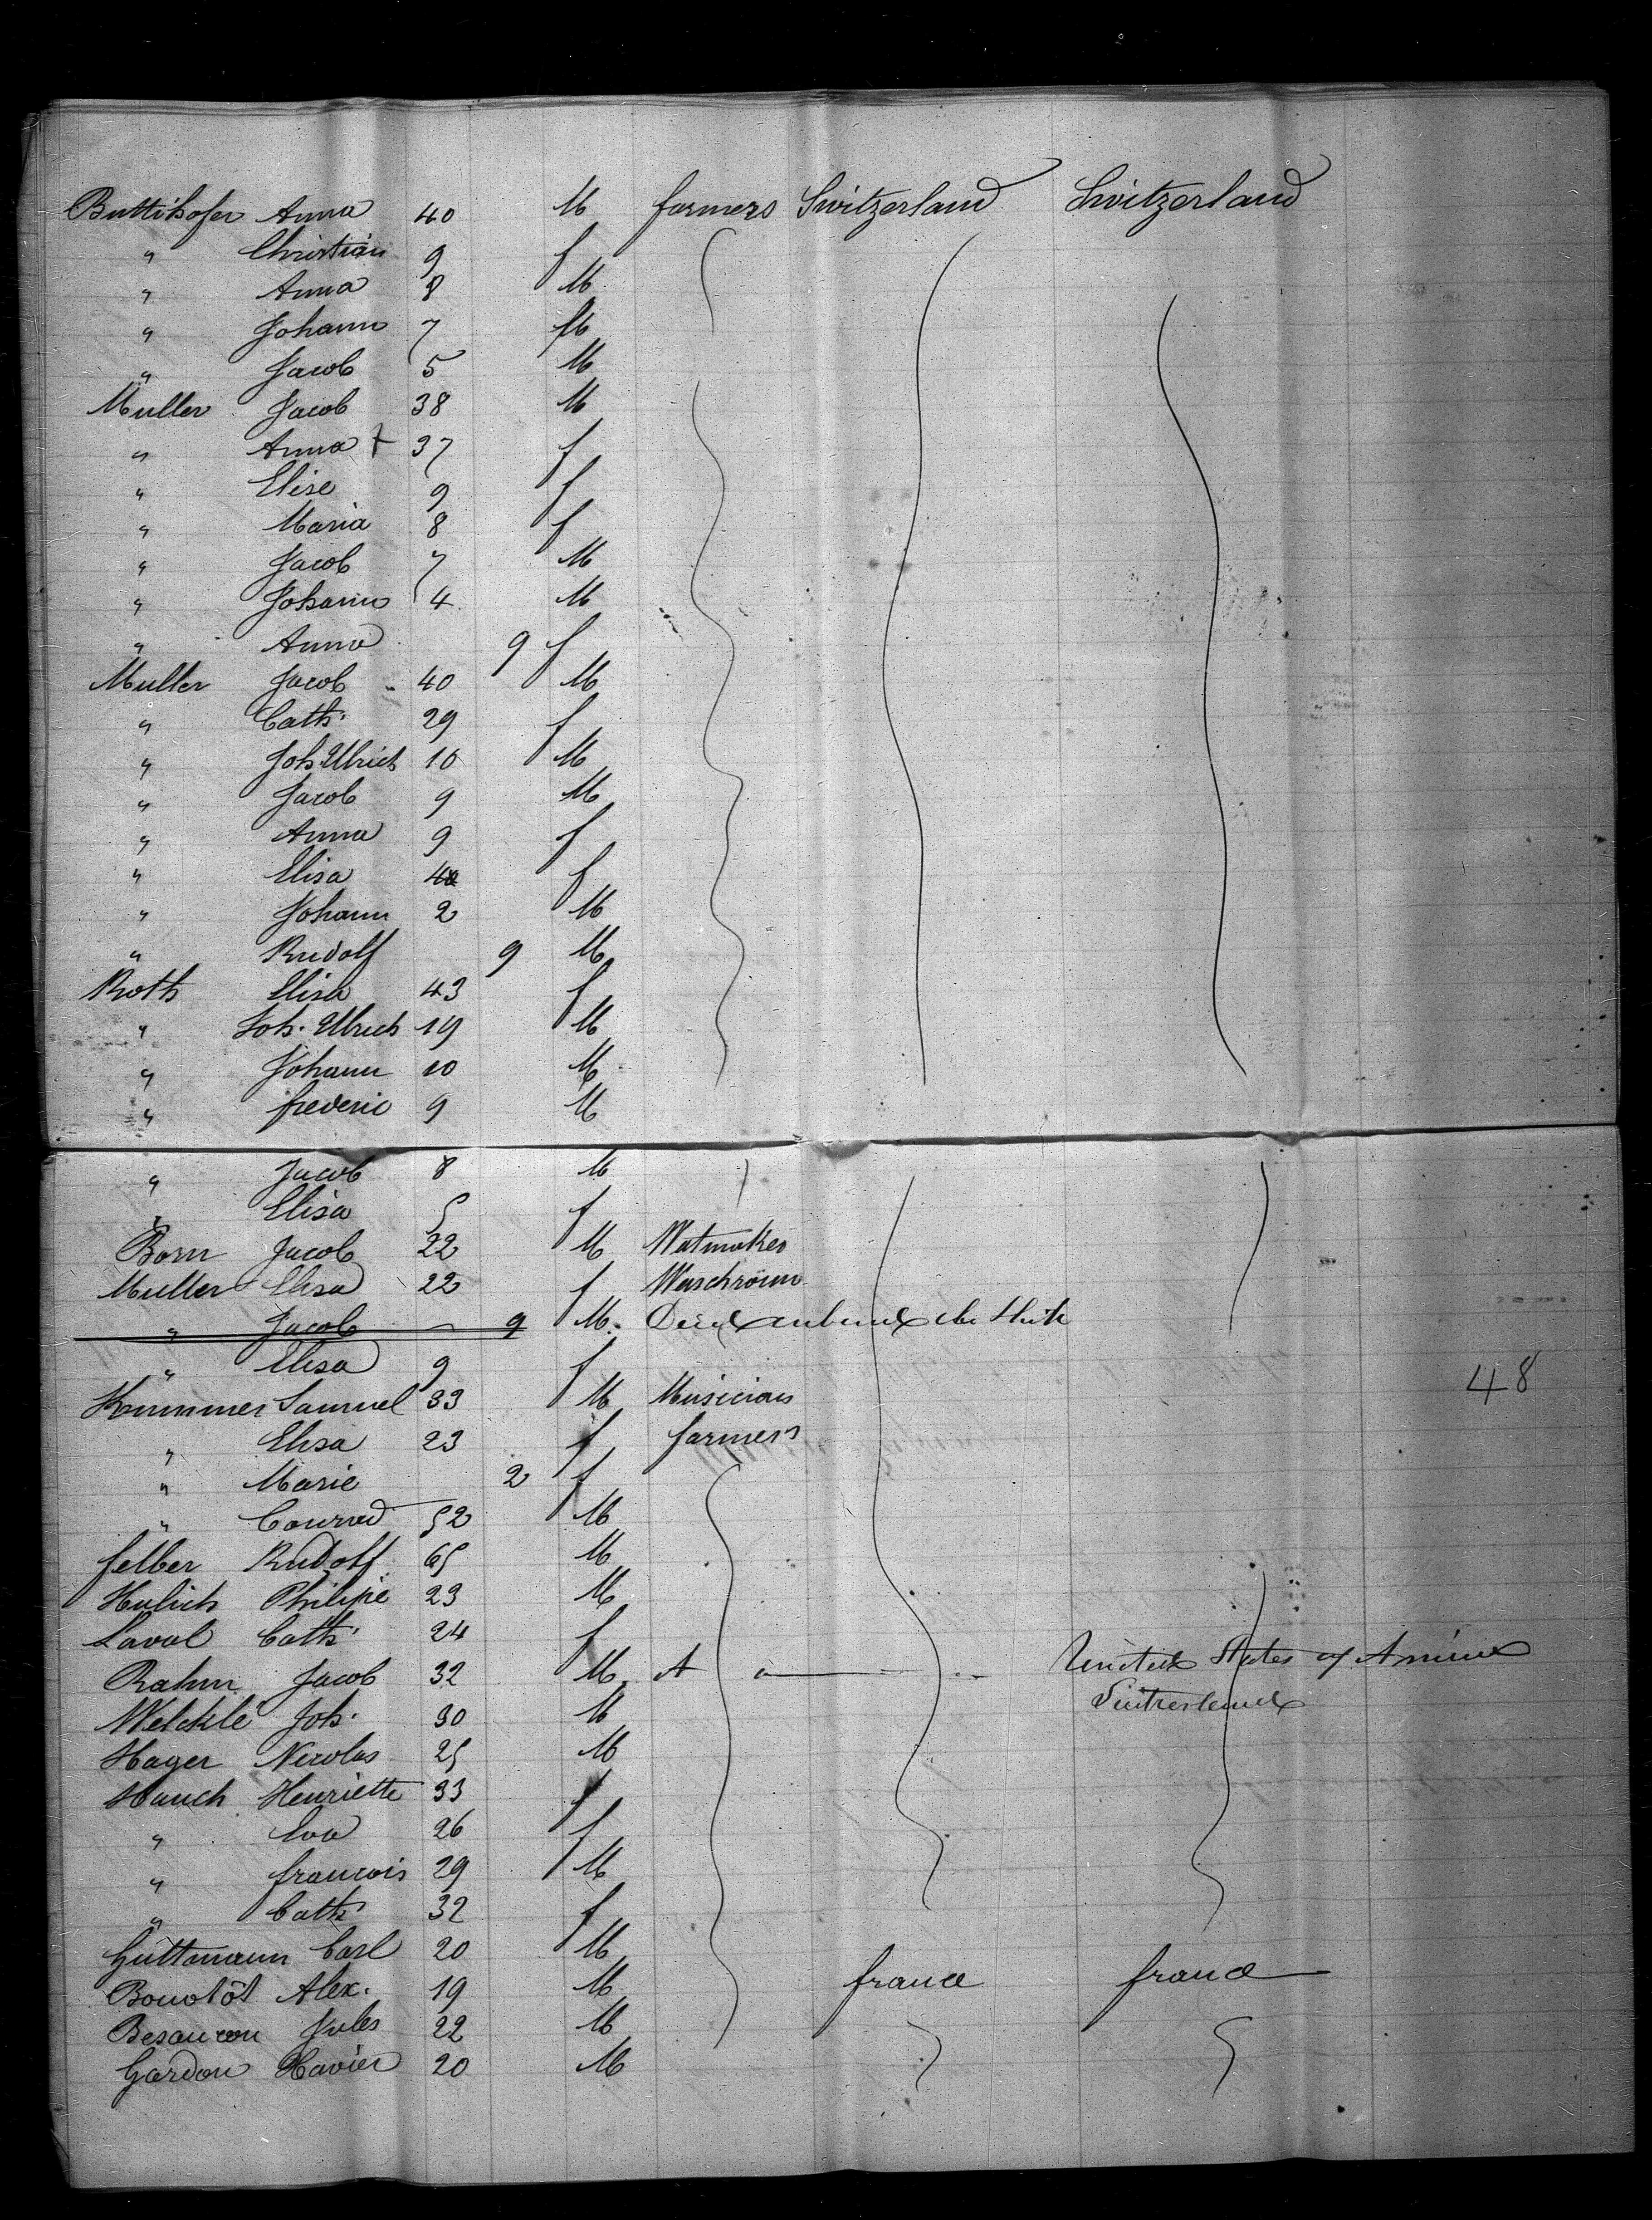 Buttikofer Anna 40 M farmers Switzerland Switzerland
" Christian 9 f
" Anna 8 M
" Johann 7 M
" Jacob 5 M
Muller Jacob 38 M
" Anna + 37 f
" Elise 9 f
" Maria 8 f
" Jacob 7 M
" Johann 4 M
" Anna 9 f
Muller Jacob 40 M
" Cath. 29 f
" Joh. Ulrich 10 M
" Jacob 9 M
" Anna 9 f
" Elisa 4 f
" Johann 2 M
" Rudolf 9 M
Roth Elisa 43 f
" Joh. Ulrich 19 M
" Johann 10 M
" frederic 9 M
" Jacob 8 M
" Elisa 5 f
Born Jacob 22 M Watmaker
Muller Elisa 22 f
" Jacob — 9 M. Died
" Elisa 9 f
Kummer Samuel 33 M Musician
" Elisa 23 f farmers
" Marie 2 f
" Conrad 52 M
felber Rudolf 65 M
Hulich Philipie 23 M
Laval Cath. 24 f
Rahm Jacob 32 M United States of America
Welckle Joh. 30 M Switzerland
Hager Nicolas 25 M
Hauch Henriette 33 f
" Eva 26 f
" francois 29 M
" Cath. 32 f
Guttmann Carl 20 M
Bouotôt Alex. 19 M france france
Besancon Jules 22 M
Gardon Xavier 20 M
48